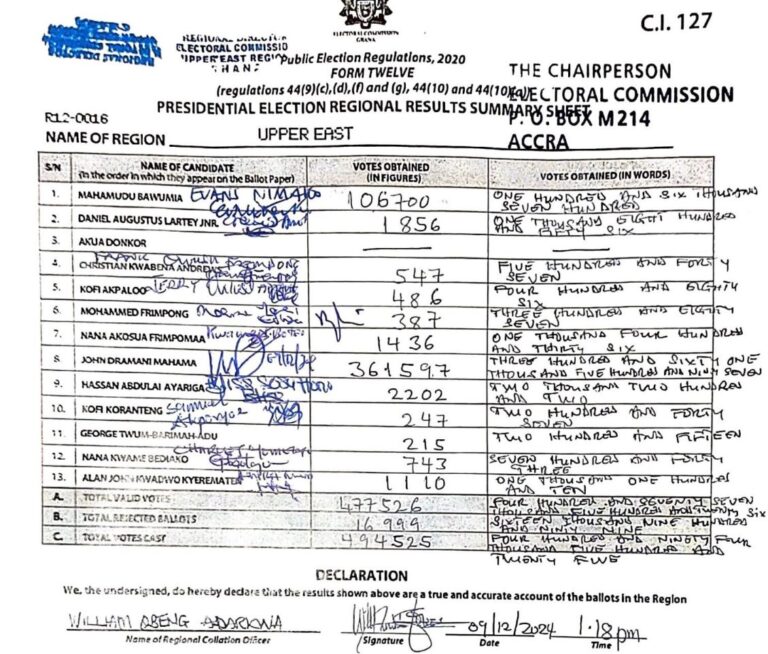 C.I. 127
ELECTORAL COMMISSION
GHANA
REGIONAL DIRECTOR
ELECTORAL COMMISSIO
UPPER EAST REGION
GHANA
Public Election Regulations, 2020
FORM TWELVE
(regulations 44(9)(c),(d),(f) and (g), 44(10) and 44(10)(a))
PRESIDENTIAL ELECTION REGIONAL RESULTS SUMMARY SHEET
THE CHAIRPERSON
ELECTORAL COMMISSION
P. O. BOX M214
ACCRA
R12-0016
NAME OF REGION UPPER EAST
S/N NAME OF CANDIDATE (In the order in which they appear on the Ballot Paper) VOTES OBTAINED (IN FIGURES) VOTES OBTAINED (IN WORDS)
1. MAHAMUDU BAWUMIA EVANS NIMAKO 106700 ONE HUNDRED AND SIX THOUSAND SEVEN HUNDRED
2. DANIEL AUGUSTUS LARTEY JNR. 1856 ONE THOUSAND EIGHT HUNDRED AND FIFTY SIX
3. AKUA DONKOR
4. CHRISTIAN KWABENA ANDREWS FRANK 547 FIVE HUNDRED AND FORTY SEVEN
5. KOFI AKPALOO JERRY 486 FOUR HUNDRED AND EIGHTY SIX
6. MOHAMMED FRIMPONG 387 THREE HUNDRED AND EIGHTY SEVEN
7. NANA AKOSUA FRIMPOMAA 1436 ONE THOUSAND FOUR HUNDRED AND THIRTY SIX
8. JOHN DRAMANI MAHAMA 361597 THREE HUNDRED AND SIXTY ONE THOUSAND FIVE HUNDRED AND NINTY SEVEN
9. HASSAN ABDULAI AYARIGA 2202 TWO THOUSAND TWO HUNDRED AND TWO
10. KOFI KORANTENG Samuel 247 TWO HUNDRED AND FORTY SEVEN
11. GEORGE TWUM-BARIMAH-ADU 215 TWO HUNDRED AND FIFTEEN
12. NANA KWAME BEDIAKO 743 SEVEN HUNDRED AND FORTY THREE
13. ALAN JOHN KWADWO KYEREMATEN 1110 ONE THOUSAND ONE HUNDRED AND TEN
A. TOTAL VALID VOTES 477526 FOUR HUNDRED AND SEVENTY SEVEN THOUSAND FIVE HUNDRED AND TWENTY SIX
B. TOTAL REJECTED BALLOTS 16999 SIXTEEN THOUSAND NINE HUNDRED AND NINTY NINE
C. TOTAL VOTES CAST 494525 FOUR HUNDRED AND NINETY FOUR THOUSAND FIVE HUNDRED AND TWENTY FIVE
DECLARATION
We, the undersigned, do hereby declare that the results shown above are a true and accurate account of the ballots in the Region
WILLIAM OBENG ADARKWA 09/12/2024 1:18pm
Name of Regional Collation Officer Signature Date Time